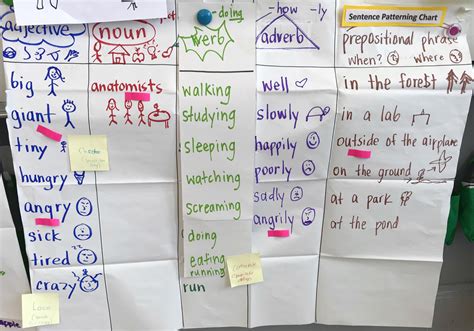 Sentence Patterning Chart
adjective
big
giant
tiny
hungry
angry
sick
tired
crazy
noun
anatomists
-doing
verb
walking
studying
sleeping
watching
screaming
doing
eating
running
run
-how -ly
adverb
well
slowly
happily
poorly
sadly
angrily
prepositional phrase
when? where
in the forest
in a lab
outside of the airplane
on the ground
at a park
at the pond